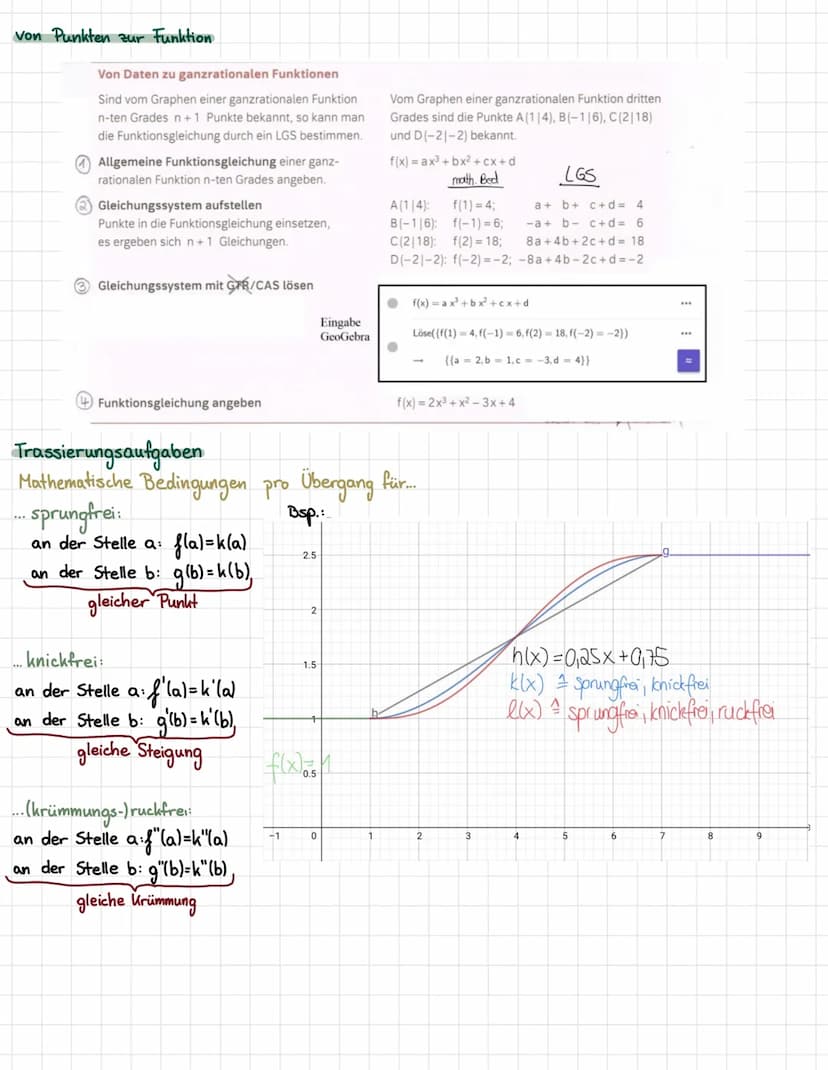 von Punkten zur Funktion
Von Daten zu ganzrationalen Funktionen
Sind vom Graphen einer ganzrationalen Funktion
n-ten Grades n + 1 Punkte bekannt, so kann man
die Funktionsgleichung durch ein LGS bestimmen.
Vom Graphen einer ganzrationalen Funktion dritten
Grades sind die Punkte A(1|4), B(−1|6), C(2|18)
und D(−2|−2) bekannt.
① Allgemeine Funktionsgleichung einer ganz-
rationalen Funktion n-ten Grades angeben.
f(x) = ax³ + bx² + cx + d
math. Bed LGS
② Gleichungssystem aufstellen
Punkte in die Funktionsgleichung einsetzen,
es ergeben sich n + 1 Gleichungen.
A(1|4): f(1) = 4; a + b + c + d = 4
B(−1|6): f(−1) = 6; −a + b − c + d = 6
C(2|18): f(2) = 18; 8a + 4b + 2c + d = 18
D(−2|−2): f(−2) = −2; −8a + 4b − 2c + d = −2
③ Gleichungssystem mit GTR/CAS lösen
Eingabe
GeoGebra
f(x) = a x³ + b x² + c x + d
Löse({f(1) = 4, f(−1) = 6, f(2) = 18, f(−2) = −2})
→ {{a = 2, b = 1, c = −3, d = 4}}
≈
④ Funktionsgleichung angeben
f(x) = 2x³ + x² − 3x + 4
Trassierungsaufgaben
Mathematische Bedingungen pro Übergang für...
... sprungfrei:
an der Stelle a: f(a)=k(a)
an der Stelle b: g(b)=k(b)
gleicher Punkt
... knickfrei:
an der Stelle a: f'(a)=k'(a)
an der Stelle b: g'(b)=k'(b)
gleiche Steigung
...(krümmungs-)ruckfrei:
an der Stelle a: f"(a)=k"(a)
an der Stelle b: g"(b)=k"(b)
gleiche Krümmung
Bsp.:
2.5
2
1.5
1
0.5
g
h
h(x)=0,25x+0,75
k(x) ≙ sprungfrei, knickfrei
l(x) ≙ sprungfrei, knickfrei, ruckfrei
f(x)=1
−1 0 1 2 3 4 5 6 7 8 9